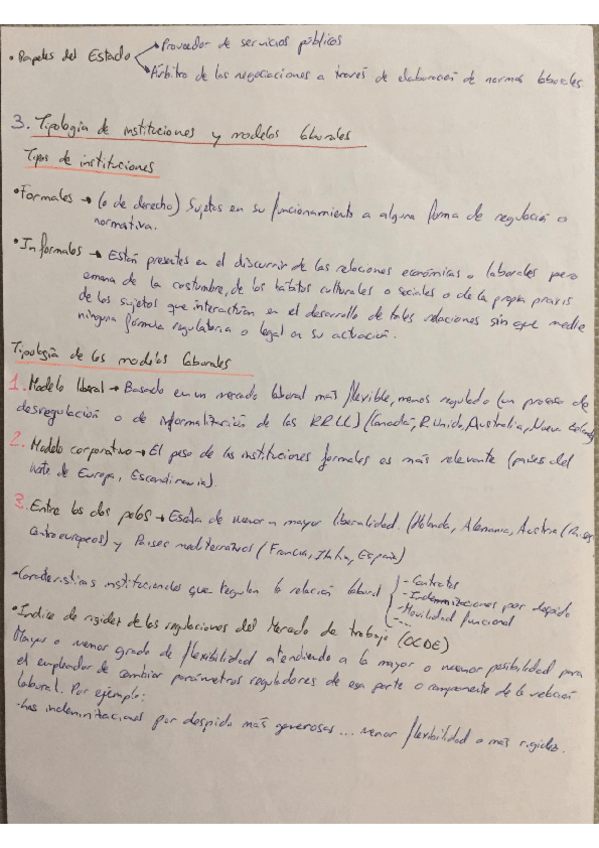 • Papeles del Estado → Proveedor de servicios públicos
→ Árbitro de las negociaciones a través de elaboración de normas laborales.
3. Tipología de instituciones y modelos laborales
Tipos de instituciones
• Formales → (o de derecho) Sujetas en su funcionamiento a alguna forma de regulación o
normativa.
• Informales → Están presentes en el discurrir de las relaciones económicas o laborales pero
emana de la costumbre, de los hábitos culturales o sociales o de la propia praxis
de los sujetos que interactúan en el desarrollo de tales relaciones sin que medie
ninguna fórmula regulatoria o legal en su actuación.
Tipología de los modelos laborales
1. Modelo liberal → Basado en un mercado laboral más flexible, menos regulado (un proceso de
desregulación o de informalización de las RRLL) (Canadá, R.Unido, Australia, Nueva Zelanda)
2. Modelo corporativo → El peso de las instituciones formales es más relevante (países del
Norte de Europa, Escandinavia).
3. Entre los dos polos → Escala de menor a mayor liberalidad. (Holanda, Alemania, Austria (Países
Centroeuropeos) y Países mediterráneos (Francia, Italia, España)
• Características institucionales que regulan la relación laboral } - Contratos
- Indemnizaciones por despido
- Movilidad funcional
- ...
• Índice de rigidez de las regulaciones del Mercado de trabajo (OCDE)
Mayor o menor grado de flexibilidad atendiendo a la mayor o menor posibilidad para
el empleador de cambiar parámetros reguladores de esa parte o componente de la relación
laboral. Por ejemplo:
- las indemnizaciones por despido más generosas... menor flexibilidad o más rigidez.